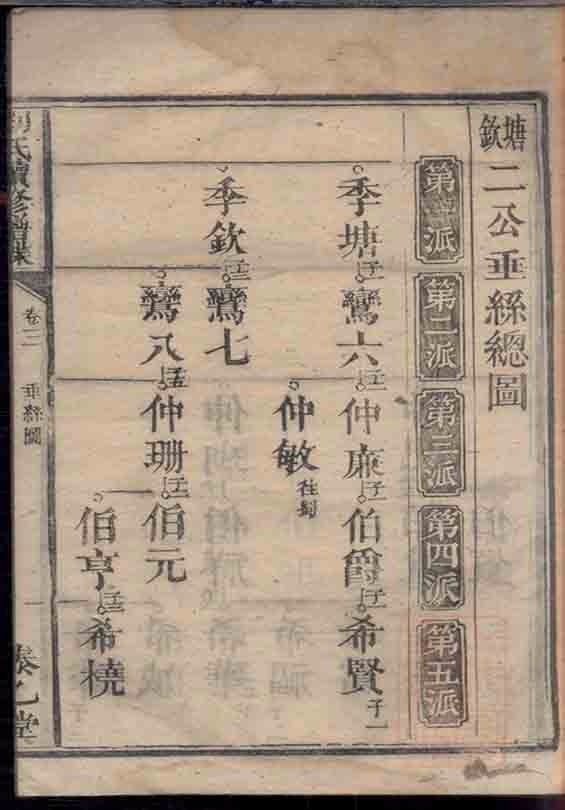 塘欽二公垂絲總圖
第一派 第二派 第三派 第四派 第五派
季塘 鸞六 仲廉 伯爵 希賢 子一
仲敏 往蜀
季欽 子二 鸞七
鸞八 仲珊 伯元
伯亨 希橈
氏續修譜
卷二 垂絲圖
乙堂